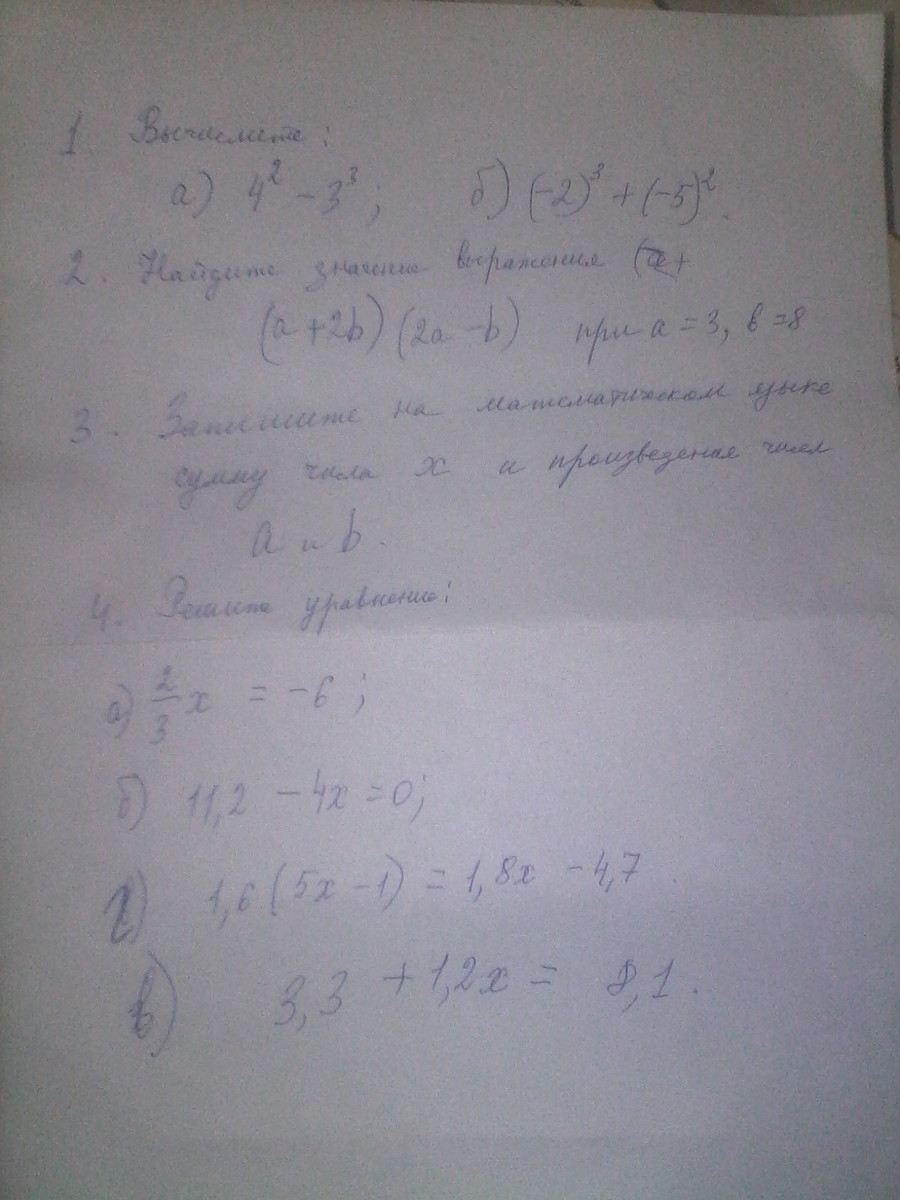 1. Вычислите:
а) 4² - 3³; б) (-2)³ + (-5)².
2. Найдите значение выражения (a+
(a+2b)(2a-b) при a=3, b=8
3. Запишите на математическом языке
сумму числа x и произведения чисел
a и b.
4. Решите уравнение:
а) 2/3 x = -6;
б) 11,2 - 4x = 0;
г) 1,6(5x-1) = 1,8x - 4,7.
в) 3,3 + 1,2x = 8,1.